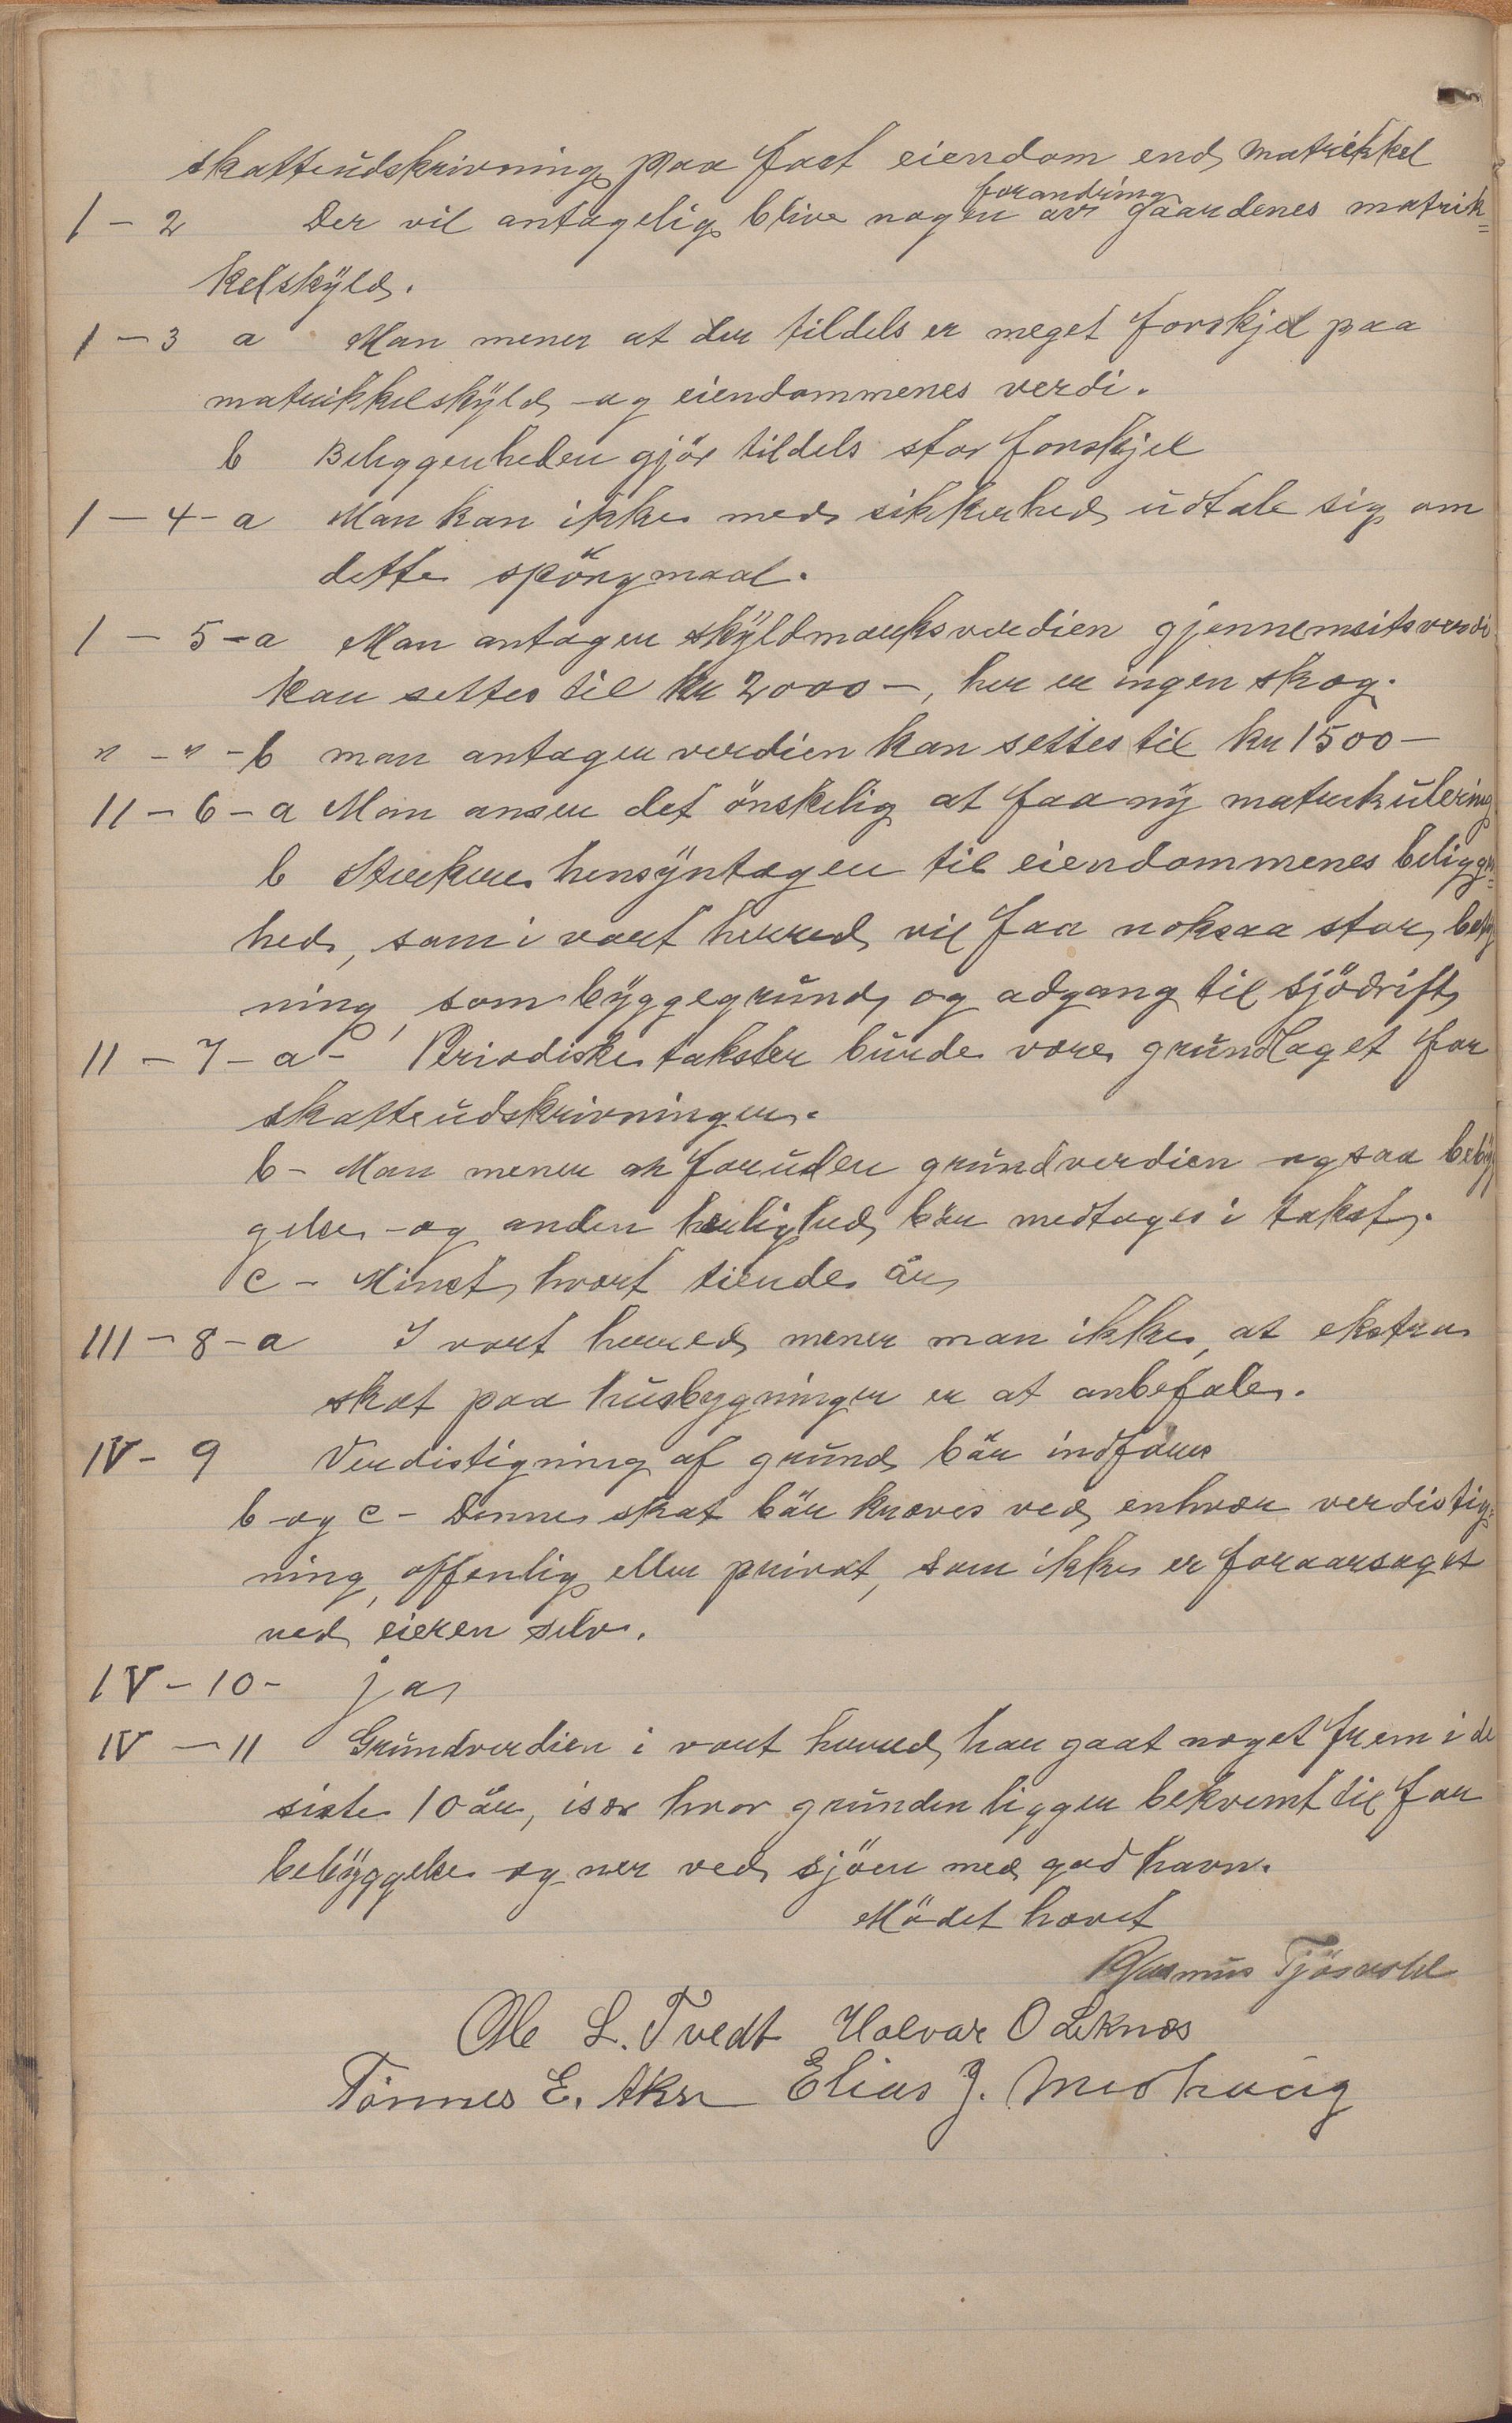 skatteudskrivning paa fast eiendom end matrikkel
1 – 2 Der vil antagelig blive nogen forandring av gaardenes matrik=
kelskyld.
1 – 3 a Man mener at der tildels er meget forskjel paa
matrikkelskyld og eiendommenes verdi.
b Beliggenheden gjör tildels stor forskjel
1 – 4 – a Man kan ikke med sikkerhed udtale sig om
dette spörgmaal.
1 – 5 – a Man antager skyldmarksverdien gjennemsitsverdi
kan settes til kr 2000 –, her er ingen skog.
" – " – b man antager verdien kan settes til kr 1500 –
II – 6 – a Man anser det önskelig at faa ny matrikulering
b Sterkere hensyntagen til eiendommenes beliggen=
hed, som i vort herred vil faa noksaa stor betyd
ning som byggegrund og adgang til sjödrift
II – 7 – a – Periodiske takster burde være grundlaget for
skatteudskrivningen.
b – Man mener at foruden grundverdien ogsaa bebyg
gelse og anden herlighed bör medtages i takst.
c – Minst hvert tiende år
III – 8 – a I vort herred mener man ikke, at ekstra
skat paa husbygninger er at anbefale.
IV – 9 Verdistigning af grund bör indföres
b og c – Denne skat bör kræves ved enhver verdistig=
ning, offenlig eller privat, som ikke er foraarsaget
ved eieren selv.
IV – 10 – ja
IV – 11 Grundverdien i vort herred har gaat noget frem i de
siste 10 år, især hvor grunden ligger bekvemt til for
bebyggelse og nær ved sjöen med god havn.
Mödet hævet
Rasmus Tjösvold
Ole L. Tvedt Halvar O Liknes
Tönnes E. Akre Elias J. Medhaug